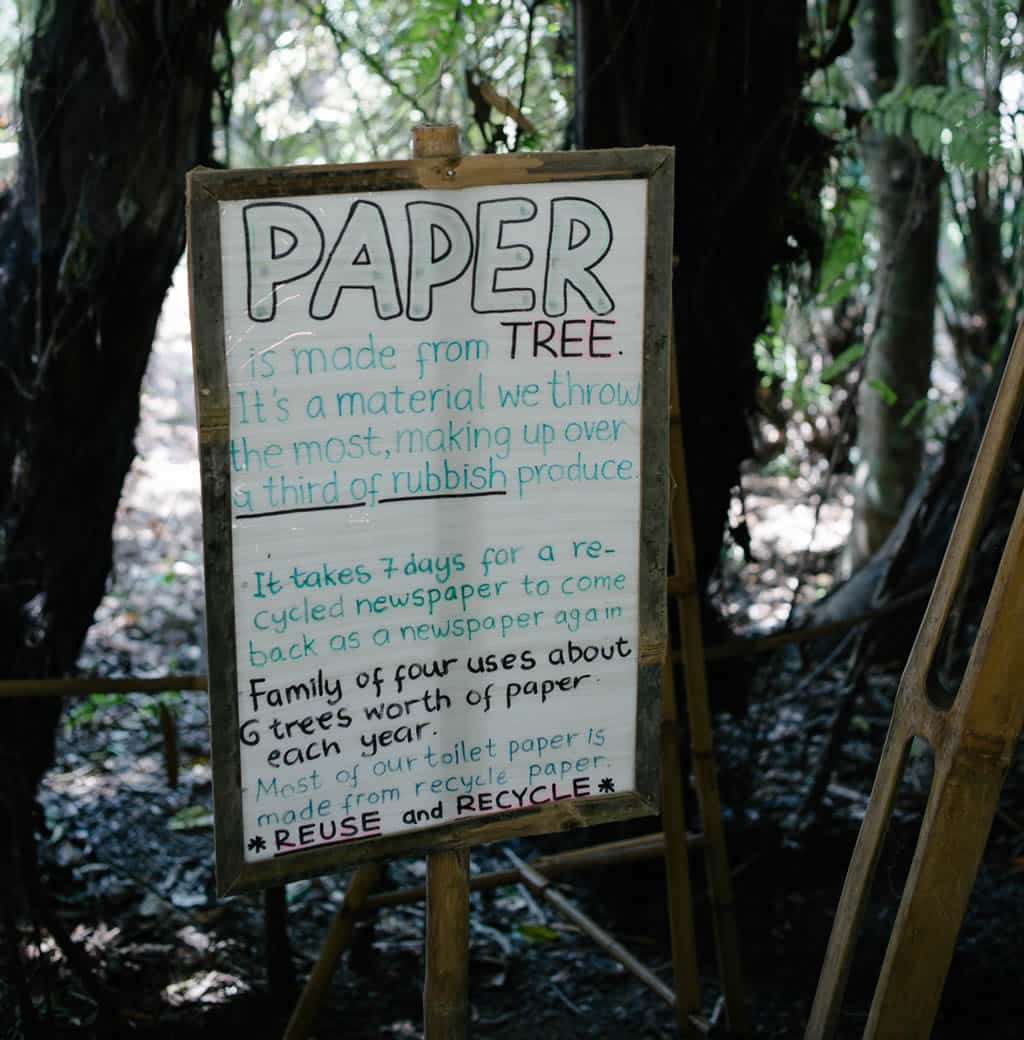 PAPER
is made from TREE.
It's a material we throw
the most, making up over
a third of rubbish produce.
It takes 7 days for a re-
cycled newspaper to come
back as a newspaper again
Family of four uses about
6 trees worth of paper
each year.
Most of our toilet paper is
made from recycle paper.
*REUSE and RECYCLE*